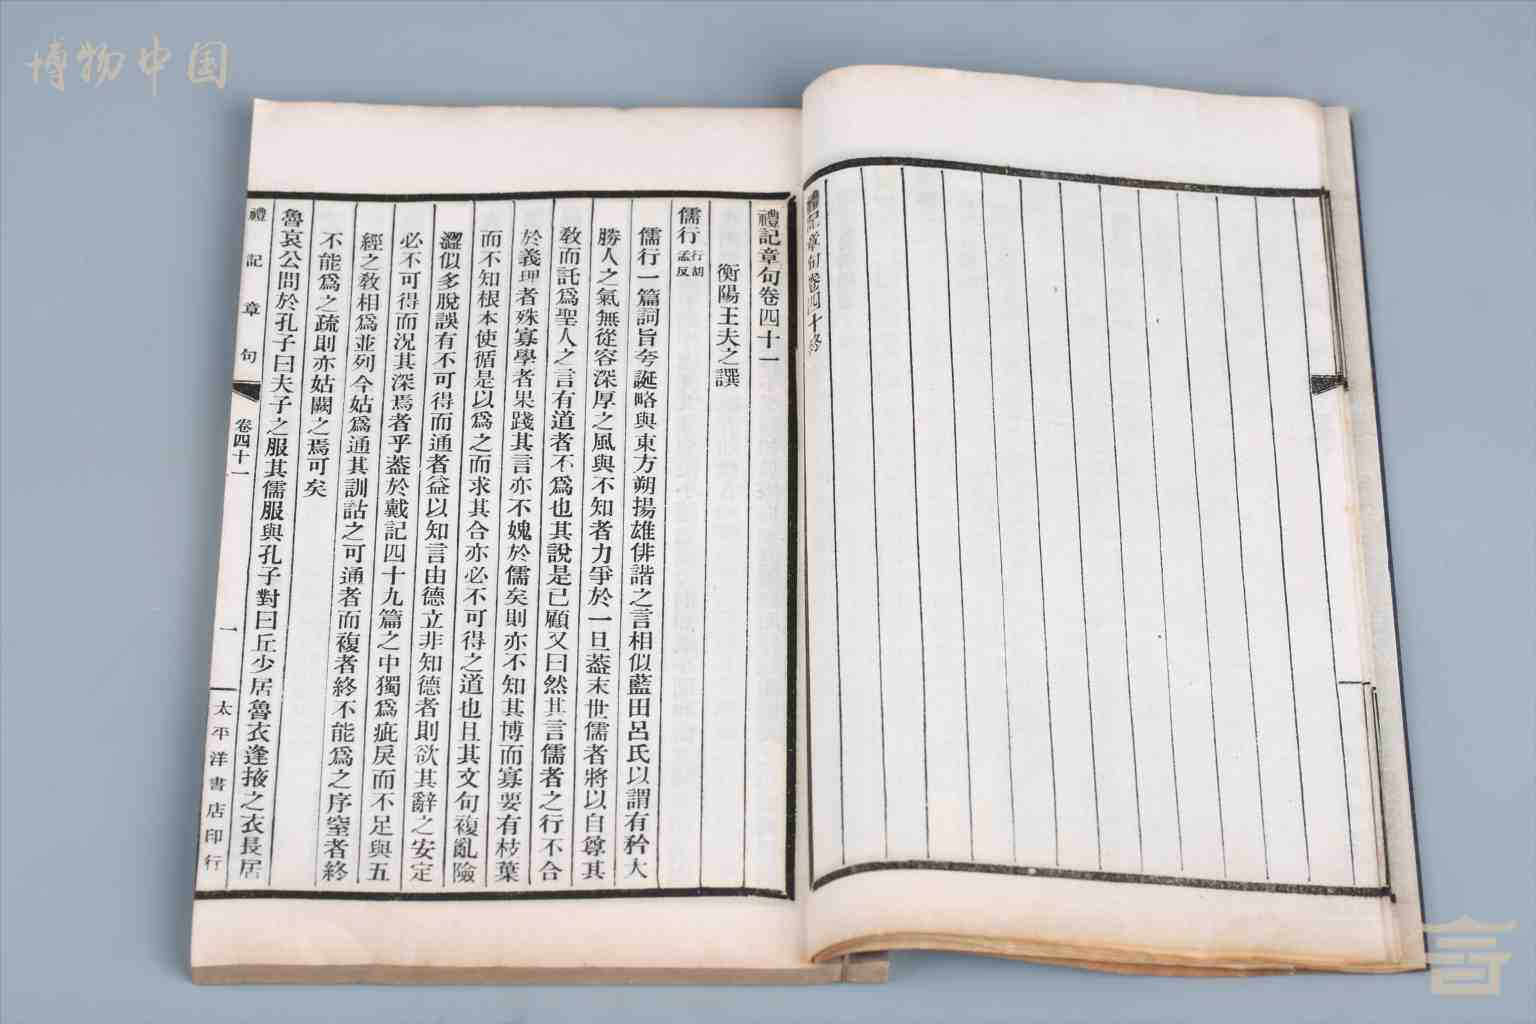 博物中国
禮記章句卷四十終
禮記章句卷四十一
衡陽王夫之譔
儒行行胡孟反
儒行一篇詞旨夸誕略與東方朔揚雄俳諧之言相似藍田呂氏以謂有矜大
勝人之氣無從容深厚之風與不知者力爭於一旦蓋末世儒者將以自尊其
敎而託爲聖人之言有道者不爲也其說是已顧又曰然其言儒者之行不合
於義理者殊寡學者果踐其言亦不媿於儒矣則亦不知其博而寡要有枝葉
而不知根本使循是以爲之而求其合亦必不可得之道也且其文句複亂險
澀似多脫誤有不可得而通者益以知言由德立非知德者則欲其辭之安定
必不可得而況其深焉者乎蓋於戴記四十九篇之中獨爲疵戾而不足與五
經之敎相爲並列今姑爲通其訓詁之可通者而複者終不能爲之序窒者終
不能爲之疏則亦姑闕之焉可矣
魯哀公問於孔子曰夫子之服其儒服與孔子對曰丘少居魯衣逢掖之衣長居
禮記章句 卷四十一 一 太平洋書店印行